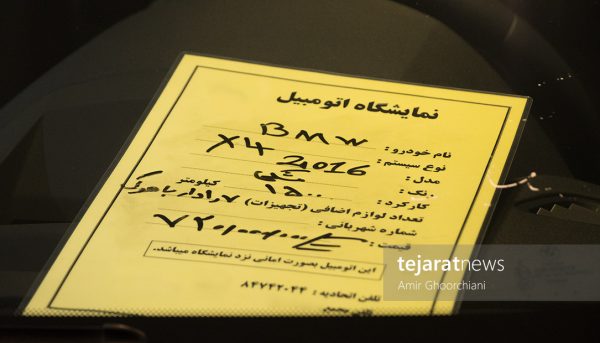 نمایشگاه اتومبیل
نام خودرو : BMW
نوع سیستم : X4
مدل : 2016
رنگ : مشکی
کارکرد : ۱۵۰۰۰ کیلومتر
تعداد لوازم اضافی (تجهیزات) ۷ رادار با
شماره شهربانی :
قیمت :
این اتومبیل بصورت امانی نزد نمایشگاه میباشد.
تلفن اتحادیه : ۸۴۷۴۲۰۴۴
tejaratnews
Amir Ghoorchiani